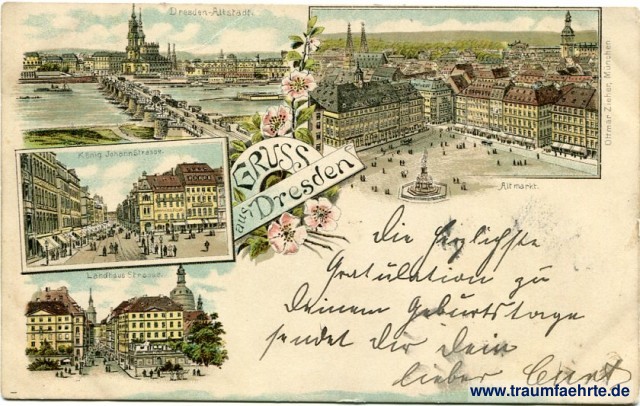 Dresden-Altstadt.
König Johannstrasse.
Landhaus Strasse.
GRUSS
aus Dresden
Altmarkt.
Ottmar Zieher, München
Die herzlichste
Gratulation zu
deinem Geburtstage
sendet dir dein
lieber Curt
www.traumfaehrte.de